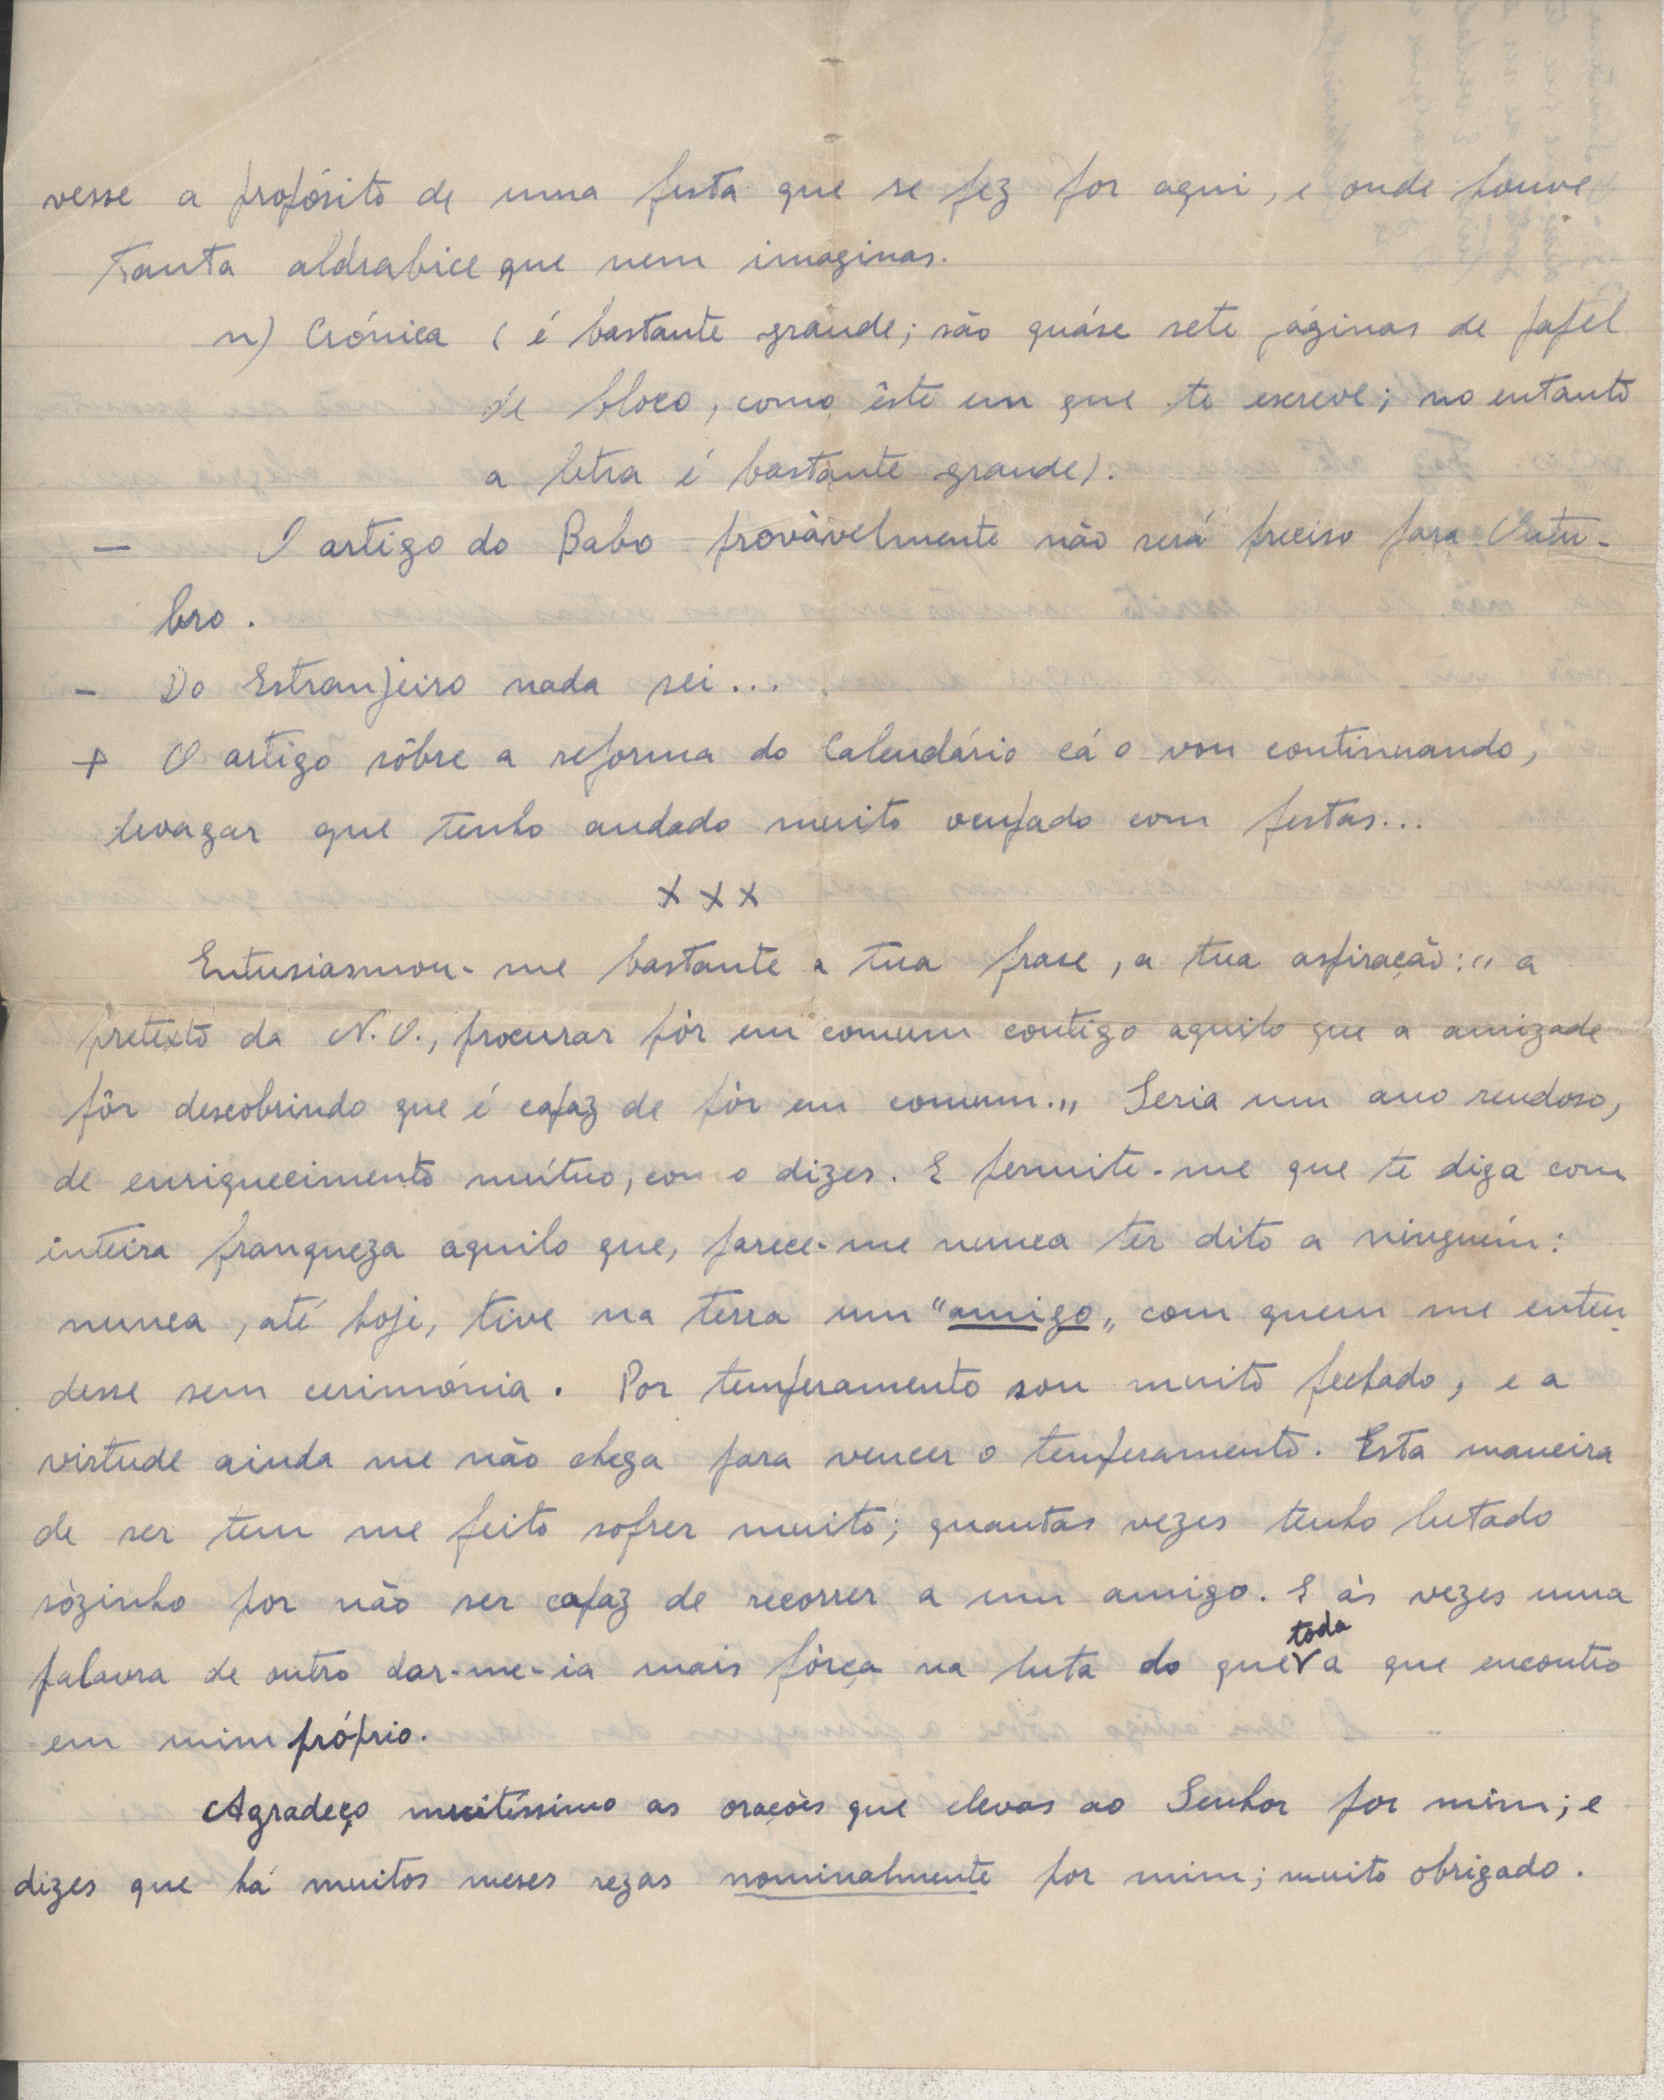 vesse a propósito de uma festa que se fez por aqui, e onde houve
tanta aldrabice que nem imaginas.
n) Crónica (é bastante grande; são quáse sete páginas de papel
de bloco, como êste em que te escrevo; no entanto
a letra é bastante grande).
— O artigo do Babo provàvelmente não será preciso para Outu-
bro.
- Do Estranjeiro nada sei...
+ O artigo sôbre a reforma do Calendário cá o vou continuando,
devagar que tenho andado muito ocupado com festas...
x x x
Entusiasmou-me bastante a tua frase, a tua aspiração: "a
pretexto da N.O., procurar pôr em comum contigo aquilo que a amizade
fôr descobrindo que é capaz de pôr em comum." Seria um ano rendoso,
de enriquecimento mútuo, como dizes. E permite-me que te diga com
inteira franqueza aquilo que, parece-me nunca ter dito a ninguém:
nunca, até hoje, tive na terra um "amigo" com quem me enten-
desse sem cerimónia. Por temperamento sou muito fechado, e a
virtude ainda me não chega para vencer o temperamento. Esta maneira
de ser tem me feito sofrer muito; quantas vezes tenho lutado
sòzinho por não ser capaz de recorrer a um amigo. E às vezes uma
toda
palavra de outro dar-me-ia mais fôrça na luta do que a que encontro
em mim próprio.
Agradeço muitíssimo as orações que elevas ao Senhor por mim; e
dizes que há muitos meses rezas nominalmente por mim; muito obrigado.